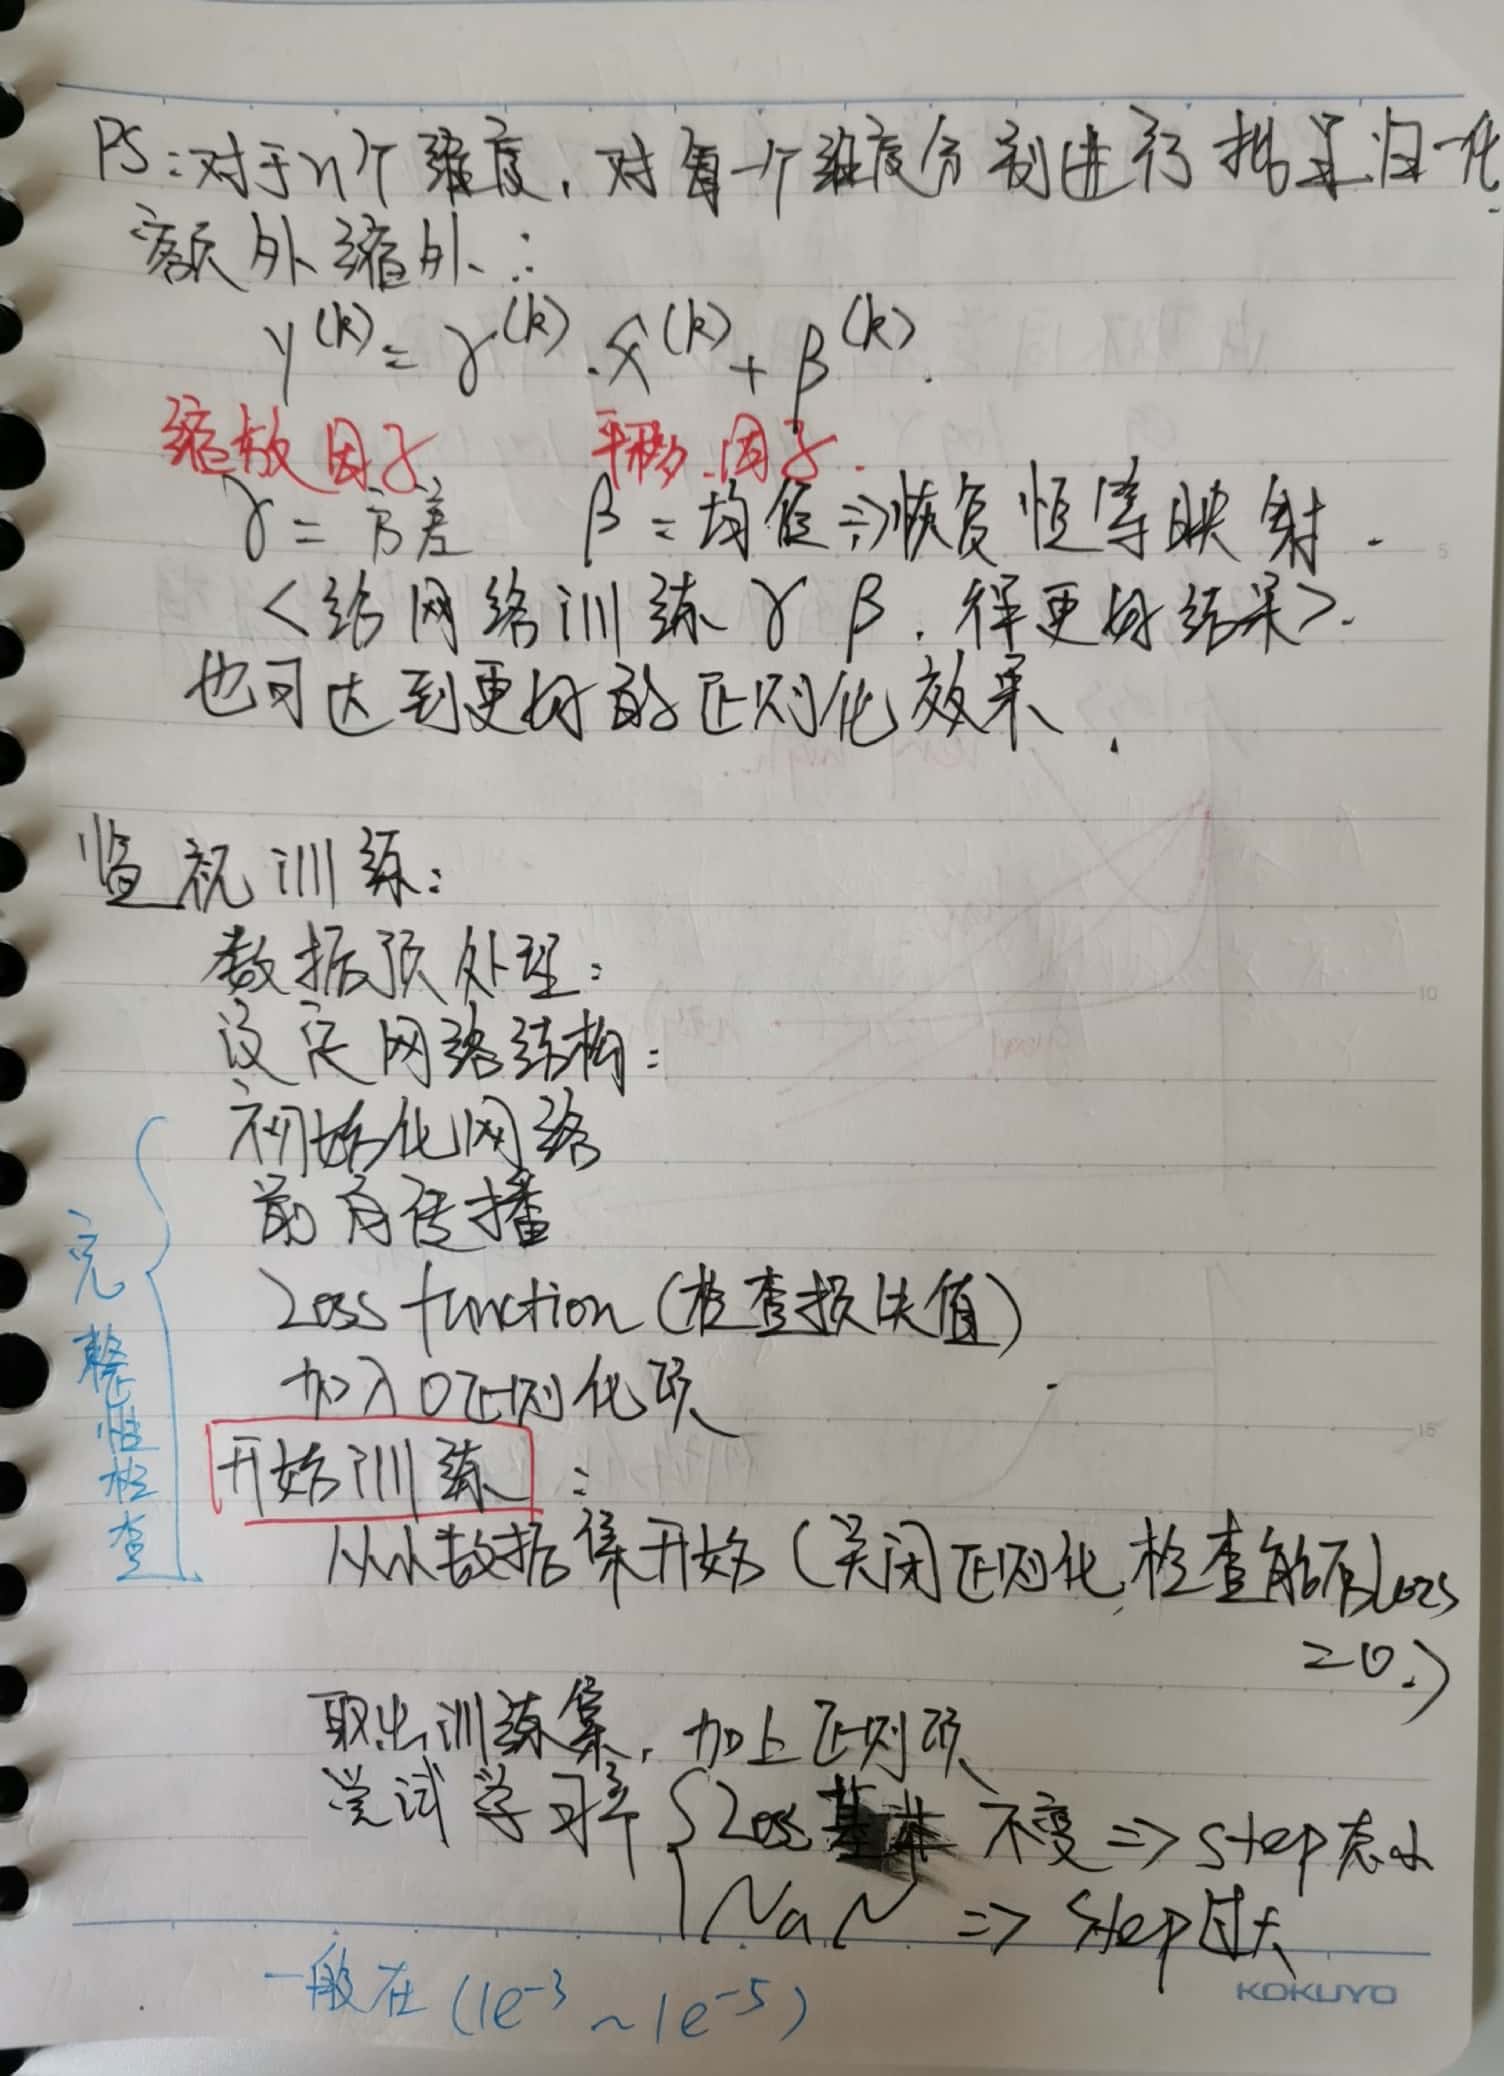 PS:对于n个维度，对每一个维度分别进行批量归一化
额外缩外：
y^(k) = γ^(k) · x̂^(k) + β^(k).
缩放因子 平移因子.
γ = 方差 β = 均值 => 恢复恒等映射.
<给网络训练 γ β，得更好结果>.
也可达到更好的正则化效果.
监视训练：
数据预处理：
设定网络结构：
初始化网络
前向传播
Loss function (检查损失值)
加入0正则化项
完整性检查
开始训练：
从小数据集开始 (关闭正则化, 检查能否Loss
=0.)
取出训练集，加上正则项
尝试学习率 { Loss基本不变 => step太小
NaN => step过大
一般在 (1e^-3 ~ 1e^-5)
KOKUYO
5
10
15